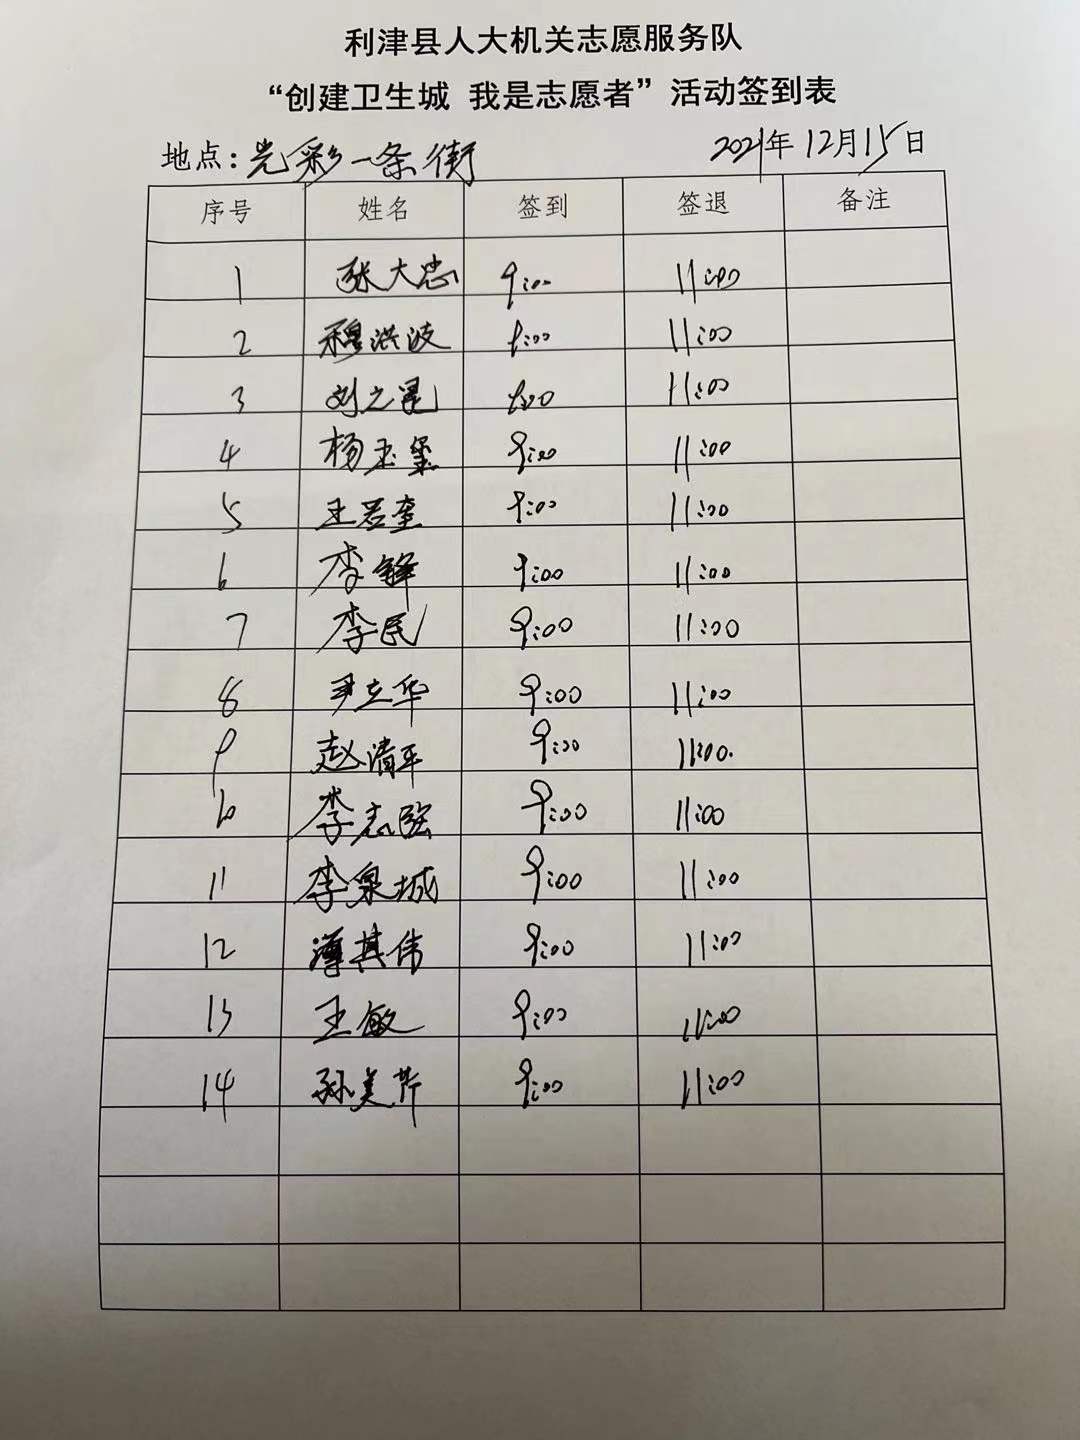 利津县人大机关志愿服务队
“创建卫生城 我是志愿者”活动签到表
地点：光彩一条街 2021年12月15日
序号 姓名 签到 签退 备注
1 张大忠 9:00 11:00
2 穆洪波 9:00 11:00
3 刘之昆 9:00 11:00
4 杨玉玺 9:00 11:00
5 王若奎 9:00 11:00
6 李锋 9:00 11:00
7 李民 9:00 11:00
8 尹立华 9:00 11:00
9 赵清平 9:00 11:00
10 李志强 9:00 11:00
11 李泉城 9:00 11:00
12 薄其伟 9:00 11:00
13 王敏 9:00 11:00
14 孙美芹 9:00 11:00